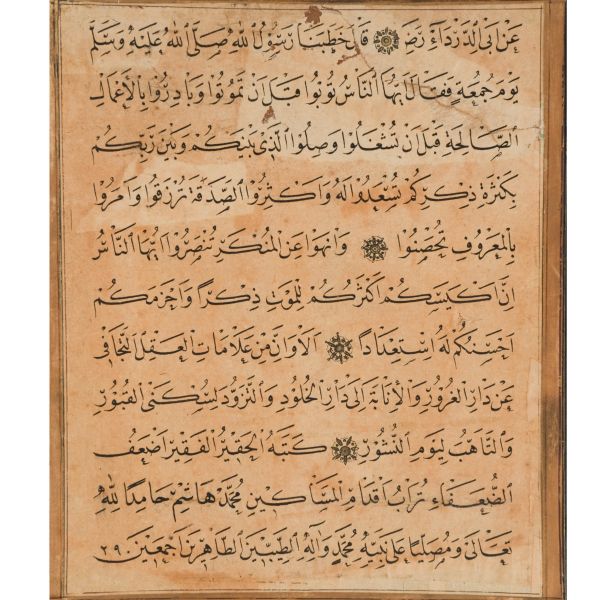 عَنْ اَبِى الدَّرْدَاءِ رَضَ قَالَ خَطَبَنَا رَسُولُ اللهِ صَلَّى اللهُ عَلَيْهِ وَسَلَّمَ
يَوْمَ جُمُعَةٍ فَقَالَ اَيُّهَا النَّاسُ تُوبُوا قَبْلَ اَنْ تَمُوتُوا وَبَادِرُوا بِالْاَعْمَالِ
الصَّالِحَةِ قَبْلَ اَنْ تُشْغَلُوا وَصِلُوا الَّذِى بَيْنَكُمْ وَبَيْنَ رَبِّكُمْ
بِكَثْرَةِ ذِكْرِكُمْ تُسْعَدُوا لَهُ وَاَكْثِرُوا الصَّدَقَةَ تُرْزَقُوا وَامُرُوا
بِالْمَعْرُوفِ تُحْصَنُوا وَانْهَوْا عَنِ الْمُنْكَرِ تُنْصَرُوا اَيُّهَا النَّاسُ
اِنَّ اَكْيَسَكُمْ اَكْثَرُكُمْ لِلْمَوْتِ ذِكْرًا وَاَحْزَمَكُمْ
اَحْسَنُكُمْ لَهُ اسْتِعْدَادًا اَلَا وَاِنَّ مِنْ عَلَامَاتِ الْعَقْلِ التَّجَافِى
عَنْ دَارِ الْغُرُورِ وَالْاِنَابَةَ اِلَى دَارِ الْخُلُودِ وَالتَّزَوُّدَ لِسُكْنَى الْقُبُورِ
وَالتَّاَهُّبَ لِيَوْمِ النُّشُورِ كَتَبَهُ الْحَقِيرُ الْفَقِيرُ اَضْعَفُ
الضُّعَفَاءِ تُرَابُ اَقْدَامِ الْمَسَاكِينِ مُحَمَّدْ هَاشِمْ حَامِدًا لِلّٰهِ
تَعَالَى وَمُصَلِّيًا عَلَى نَبِيِّهِ مُحَمَّدٍ وَاٰلِهِ الطَّيِّبِينَ الطَّاهِرِينَ اَجْمَعِينَ ٢٩